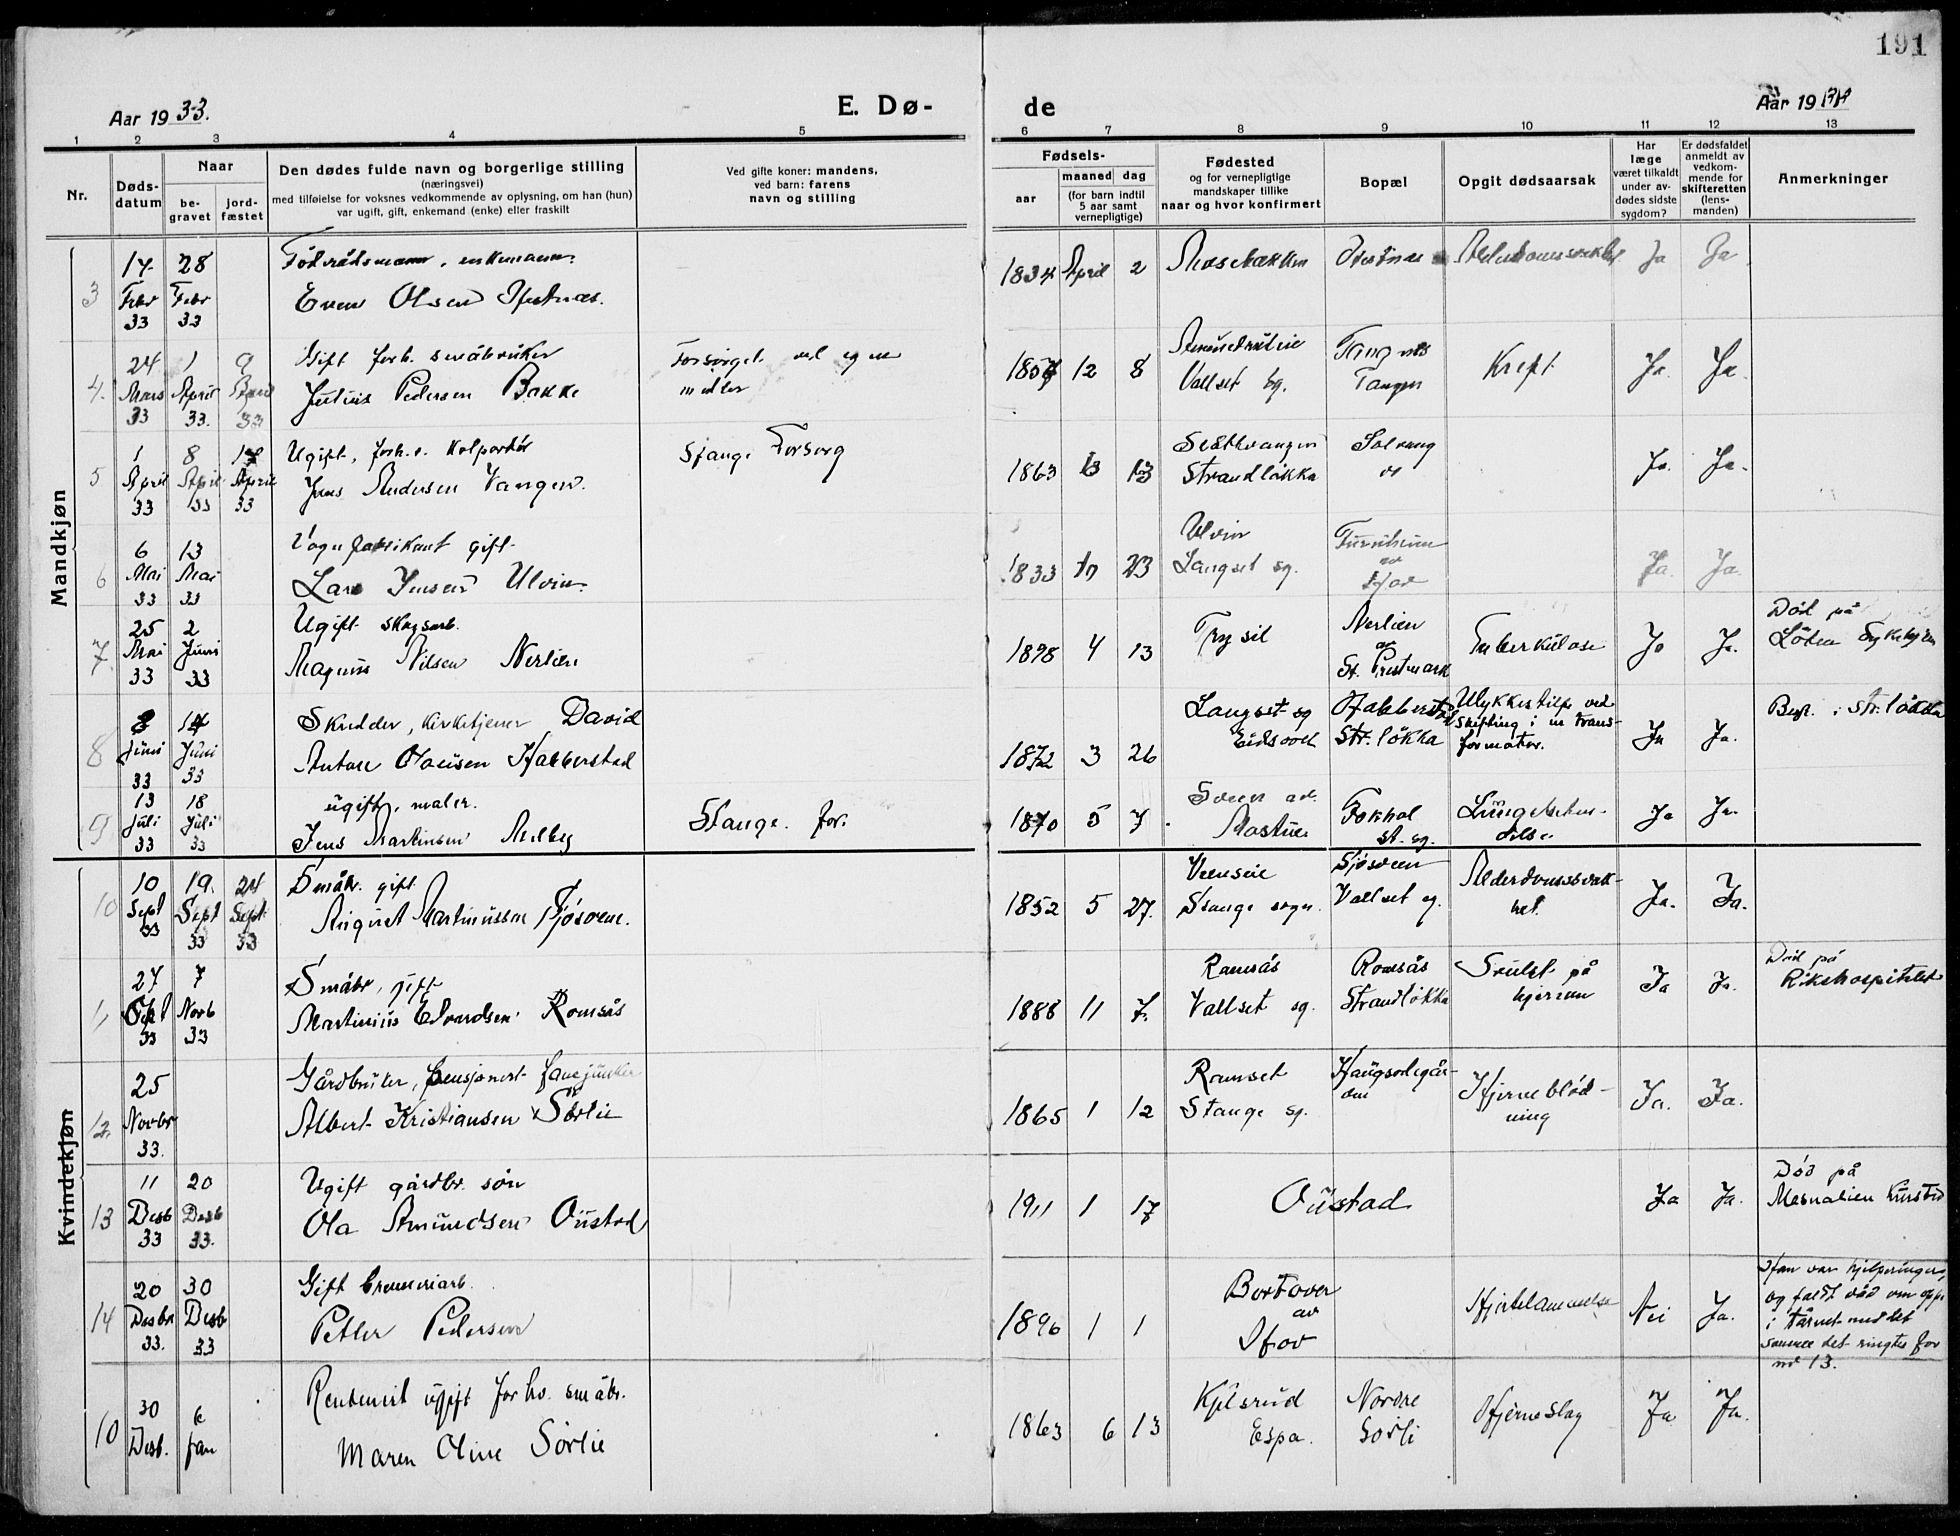 191
Aar 1933.
E. Dø-
de
Aar 19
1 2 3 4 5 6 7 8 9 10 11 12 13
Nr.
Døds-
datum
Naar
be-
gravet
jord-
fæstet
Den dødes fulde navn og borgerlige stilling
(næringsvei)
med tilføielse for voksnes vedkommende av oplysning, om han (hun)
var ugift, gift, enkemand (enke) eller fraskilt
Ved gifte koner: mandens,
ved barn: farens
navn og stilling
Fødsels-
aar
maaned dag
(for barn indtil
5 aar samt
vernepligtige)
Fødested
og for vernepligtige
mandskaper tillike
naar og hvor konfirmert
Bopæl
Opgit dødsaarsak
Har
læge
været tilkaldt
under av-
dødes sidste
sygdom?
Er dødsfaldet
anmeldt av
vedkom-
mende for
skifteretten
(lens-
manden)
Anmerkninger
Mandkjøn
3
14 Febr 33
28 Febr 33
Føderådsmann, enkemann.
Even Olsen
1834 April 2
Ja
Ja
4.
24 Mars 33
1 April 33.
9 April 33
Gift forh. småbruker
Julius Pedersen Bakke
Forsørget ved egne
midler
12 8
Vallset sg.
Tangnes
Tangen
Kreft
Ja.
Ja.
5
1 April 33
8 April 33
17 April 33
Ugift, forh.v. Kolportør
Jens Andersen Vangen.
Stange Forsorg
1863
Strandløkka
Solvang
Ja.
Ja.
6
6 Mai 33
13 Mai 33
Vognfabrikant gift.
Lars Jensen Ulvin.
1833 10 23
Ulvin
Langset sg.
Furuheim
Ja.
Ja.
7.
25 Mai 33
2 Juni 33
Ugift skogsarb.
Magnus Nilsen Nerlien
1898 4 13
Trysil
Nerlien
St. Prestmark
Tuberkulose
Ja
Ja.
Død på
Løten Sykehjem
8
Juni 33
14 Juni 33
Skredder, kirketjener David
Anton Olausen Habberstad
1872 3 26
Langset sg
Eidsvoll
Habberstad
Str.løkka
Ulykkestilf. ved
skifting i en trans-
formator.
Ja
Ja.
Begr. i Str.løkka
9
13 Juli 33
18 Juli 33
ugift, maler.
Jens Martinsen Melby
Stange. for.
1870 5 7
Sveen av.
Fokhol
St. sg.
Lungebeten-
delse
Ja
Ja.
10
10 Sept 33
19. Sept 33
24 Sept. 33
Småbr. gift
August Martinussen Sjøsveen.
1852 5 27.
Stange sogn.
Sjøsveen
Vallset sg.
Alderdomssvak-
het.
Ja.
Ja.
11
27 Okt 33
7 Novb 33
Småbr, gift
Martinius Edvardsen Romsås
1888 11 7.
Ramsås
Vallset sg.
Romsås
Strandløkka
Svulst på
hjernen
Ja
Ja.
Død på
Rikshospitalet
Kvindekjøn
12.
25 Novbr 33.
Gårdbruker, pensjonert fanejunker
Albert Kristiansen Sørlie
1865 1 12
Ramset
Stange sg.
Haugsodegår-
den
Hjerneblød-
ning
Ja.
Ja.
13
11 Desb 33
20 Desb 33.
Ugift gårdbr. sønn
Ola Amundsen Oustad
1911 1 17
Oustad
Ja
Ja.
Død på
Mesnalien Kursted
14
20 Desbr 33.
30 Desb 33
Gift brenneriarb.
Petter Pedersen
1896 1 1
Bortover
av
Hov
Hjertelammelse
Nei
Ja.
Han var hjelperinger,
og faldt død om oppe
i tårnet med det
samme det ringtes for
nr 13.
10
30 Desb.
6 Jan
Rentenist ugift forhv. småbr.
Maren Oline Sørlie
1863 6 13
Kjelsrud
Espa.
Nordre
Sørli
Hjerneslag
Ja
Ja.